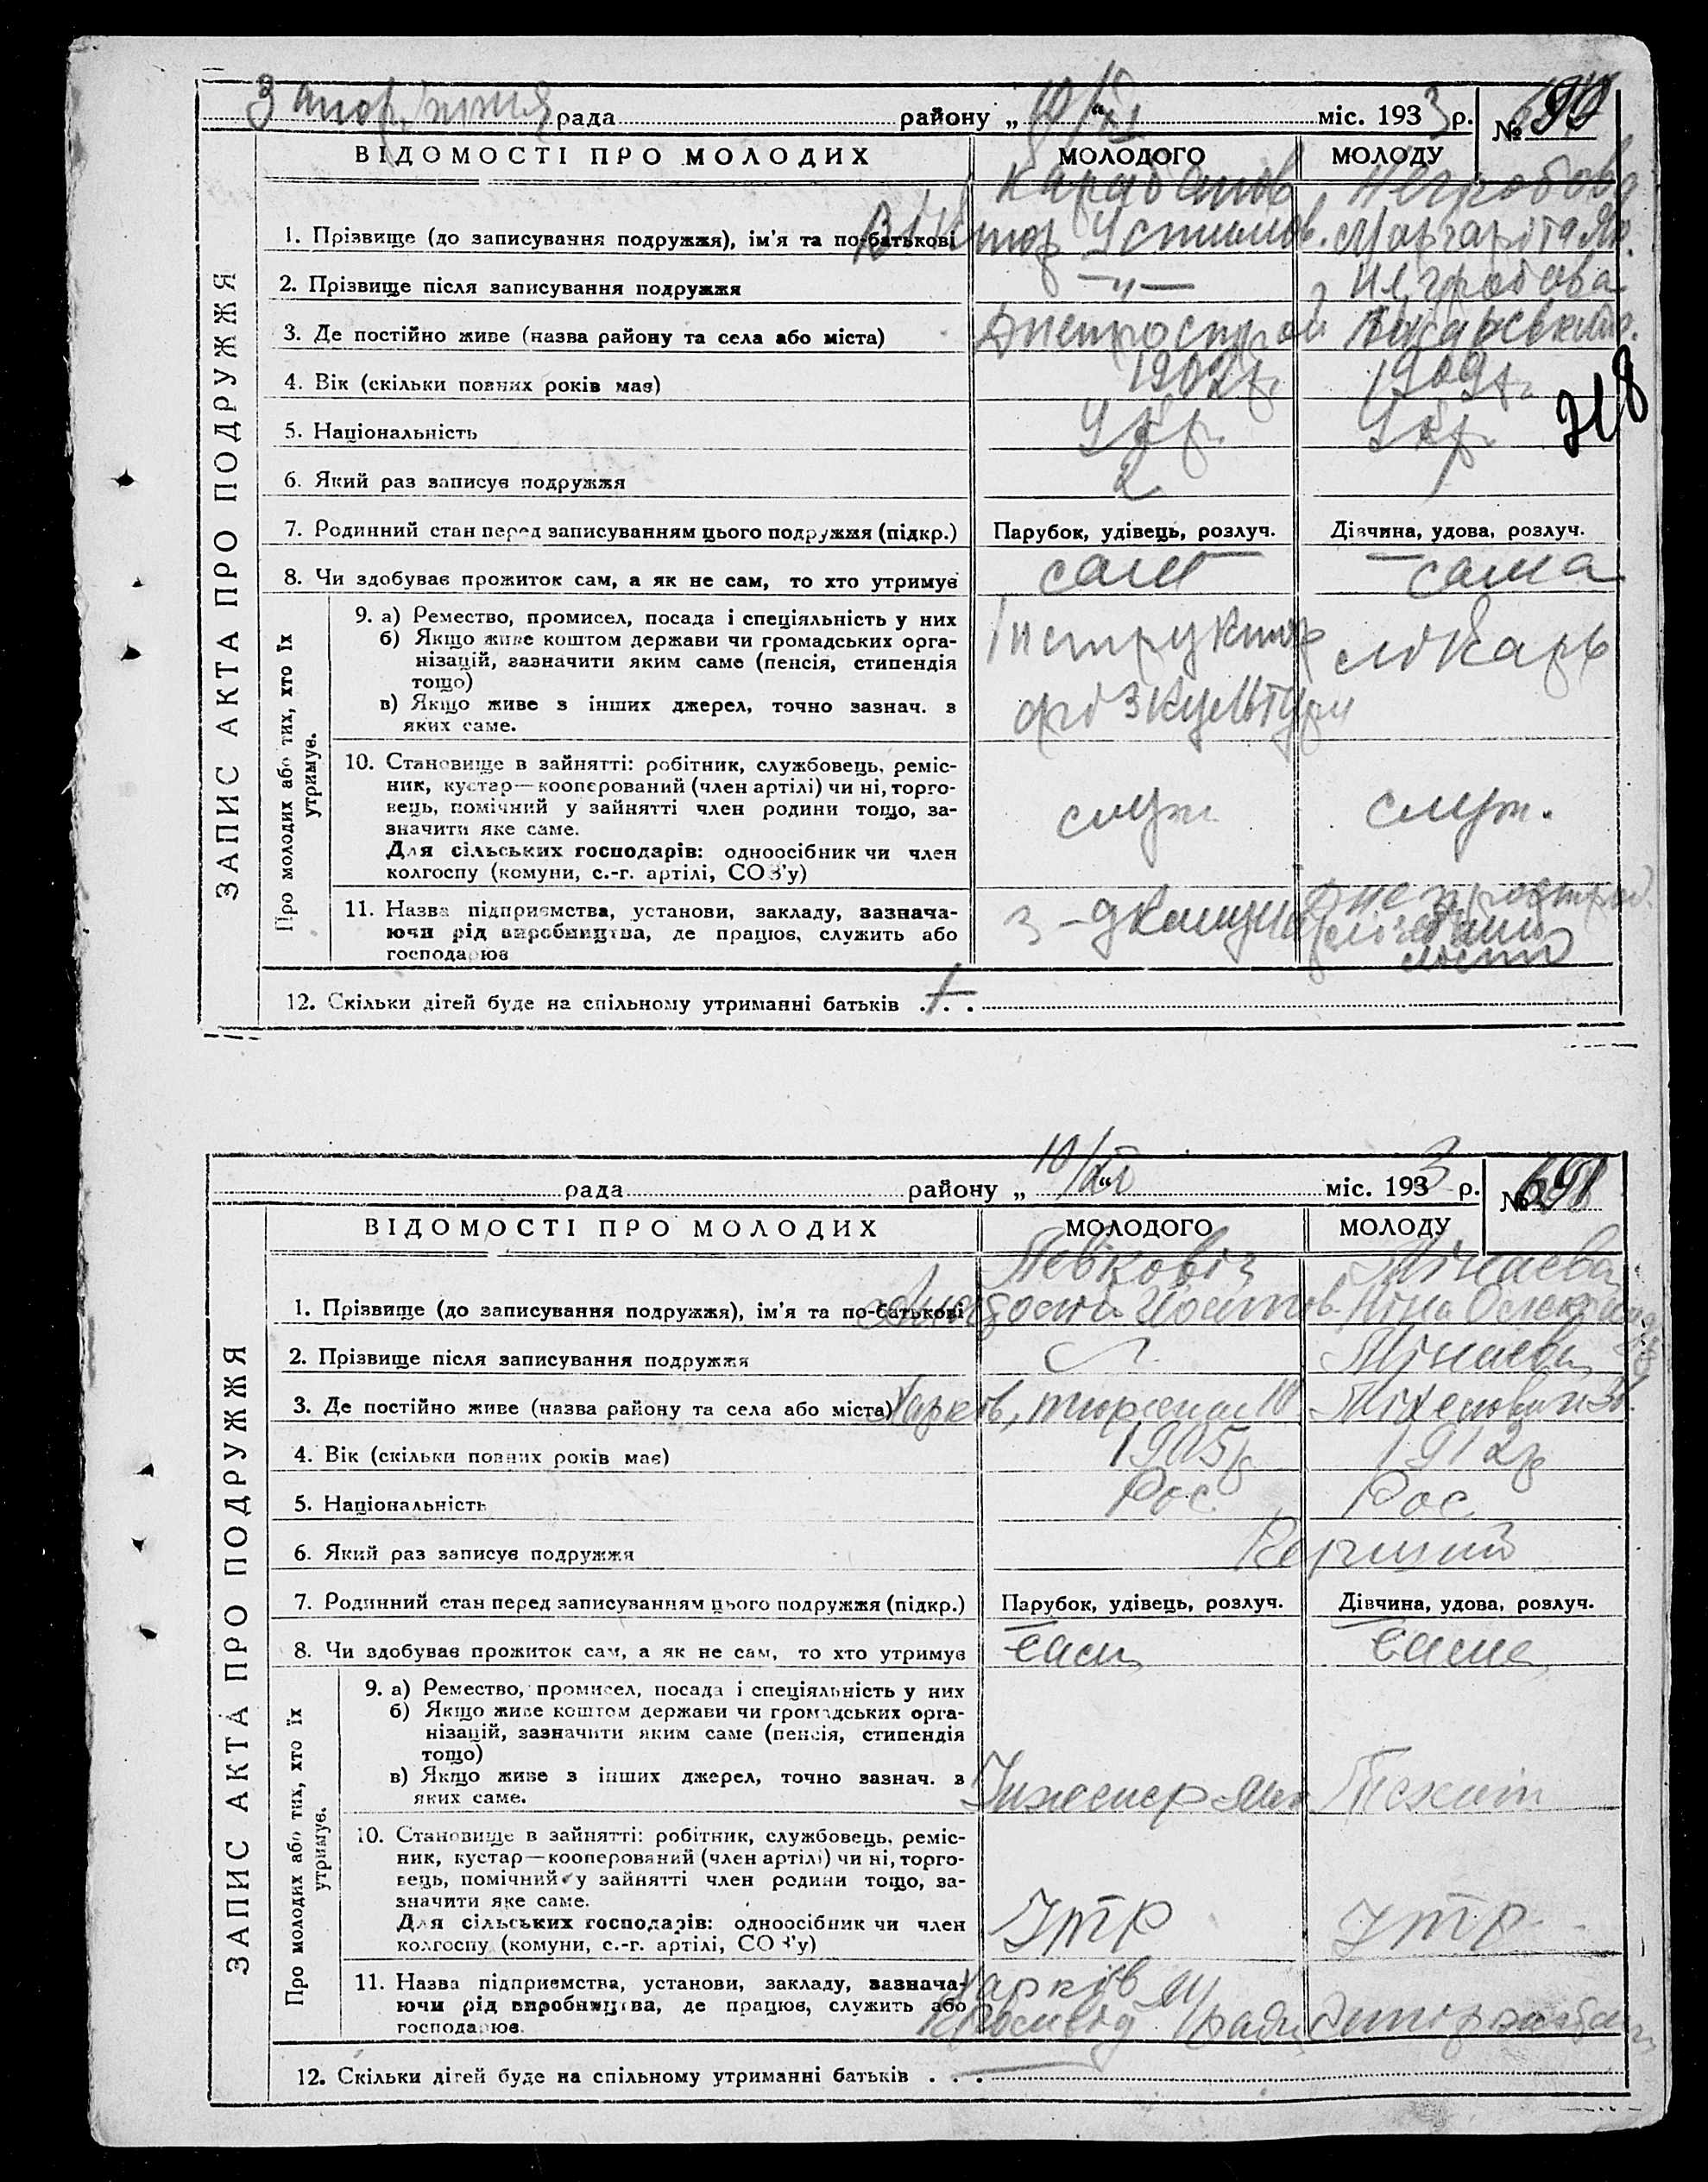 Запоріжжя рада района „10/XI“ міс. 1933 р. №
ВІДОМОСТІ ПРО МОЛОДИХ МОЛОДОГО МОЛОДУ
ЗАПИС АКТА ПРО ПОДРУЖЖЯ
Карабанов Негробова
1. Прізвище (до записування подружжя), ім’я та по-батькові Віктор Устимов. Маргаріта Як.
2. Прізвище після записування подружжя —„— Негробова
3. Де постійно живе (назва району та села або міста) Днепрострой
4. Вік (скільки повних років має) 1902 р. 1909 р.
5. Національність Укр. Укр.
6. Який раз записує подружжя 2 1
7. Родинний стан перед записуванням цього подружжя (підкр.) Парубок, удівець, розлуч. Дівчина, удова, розлуч.
8. Чи здобуває прожиток сам, а як не сам, то хто утримує сам сама
Про молодих або тих, хто їх утримує.
9. а) Ремество, промисел, посада і спеціяльність у них
б) Якщо живе коштом держави чи громадських орга-
нізацій, зазначити яким саме (пенсія, стипендія
тощо)
в) Якщо живе з інших джерел, точно зазнач. з
яких саме.
Інструктор
фізкультури
лікарь
10. Становище в зайнятті: робітник, службовець, реміс-
ник, кустар—кооперований (член артілі) чи ні, торго-
вець, помічний у зайнятті член родини тощо, за-
значити яке саме.
Для сільських господарів: одноосібник чи член
колгоспу (комуни, с.-г. артілі, СОЗ’у)
служ. служ.
11. Назва підприємства, установи, закладу, зазнача-
ючи рід виробництва, де працює, служить або
господарює
12. Скільки дітей буде на спільному утриманні батьків . . .
рада району „10/XI“ міс. 1933 р. № 691
ВІДОМОСТІ ПРО МОЛОДИХ МОЛОДОГО МОЛОДУ
ЗАПИС АКТА ПРО ПОДРУЖЖЯ
Мінаева
1. Прізвище (до записування подружжя), ім’я та по-батькові Ніна Олександ
2. Прізвище після записування подружжя Мінаева
3. Де постійно живе (назва району та села або міста) Харків,
4. Вік (скільки повних років має) 1905 р 1912 р
5. Національність Рос. Рос.
6. Який раз записує подружжя Перший
7. Родинний стан перед записуванням цього подружжя (підкр.) Парубок, удівець, розлуч. Дівчина, удова, розлуч.
8. Чи здобуває прожиток сам, а як не сам, то хто утримує сам сама
Про молодих або тих, хто їх утримує.
9. а) Ремество, промисел, посада і спеціяльність у них
б) Якщо живе коштом держави чи громадських орга-
нізацій, зазначити яким саме (пенсія, стипендія
тощо)
в) Якщо живе з інших джерел, точно зазнач. з
яких саме.
Інженер Технік
10. Становище в зайнятті: робітник, службовець, реміс-
ник, кустар—кооперований (член артілі) чи ні, торго-
вець, помічний у зайнятті член родини тощо, за-
значити яке саме.
Для сільських господарів: одноосібник чи член
колгоспу (комуни, с.-г. артілі, СОЗ’у)
ІТР ІТР
11. Назва підприємства, установи, закладу, зазнача-
ючи рід виробництва, де працює, служить або
господарює.
Харків
12. Скільки дітей буде на спільному утриманні батьків . . .